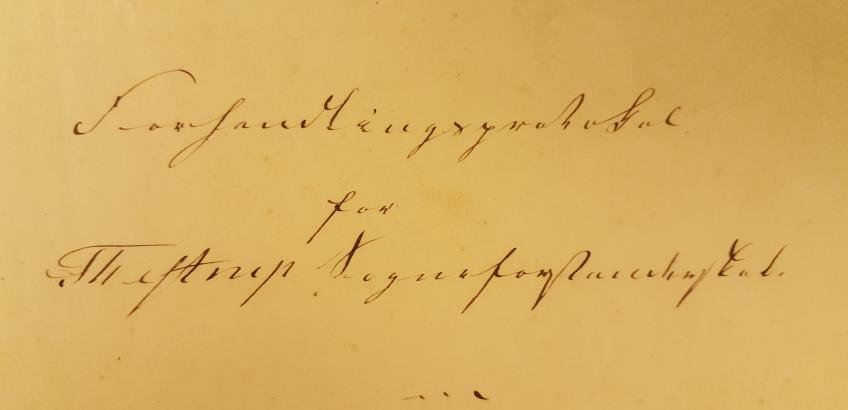 Forhandlingsprotokol
for
Thestrup Sogneforstanderskab.